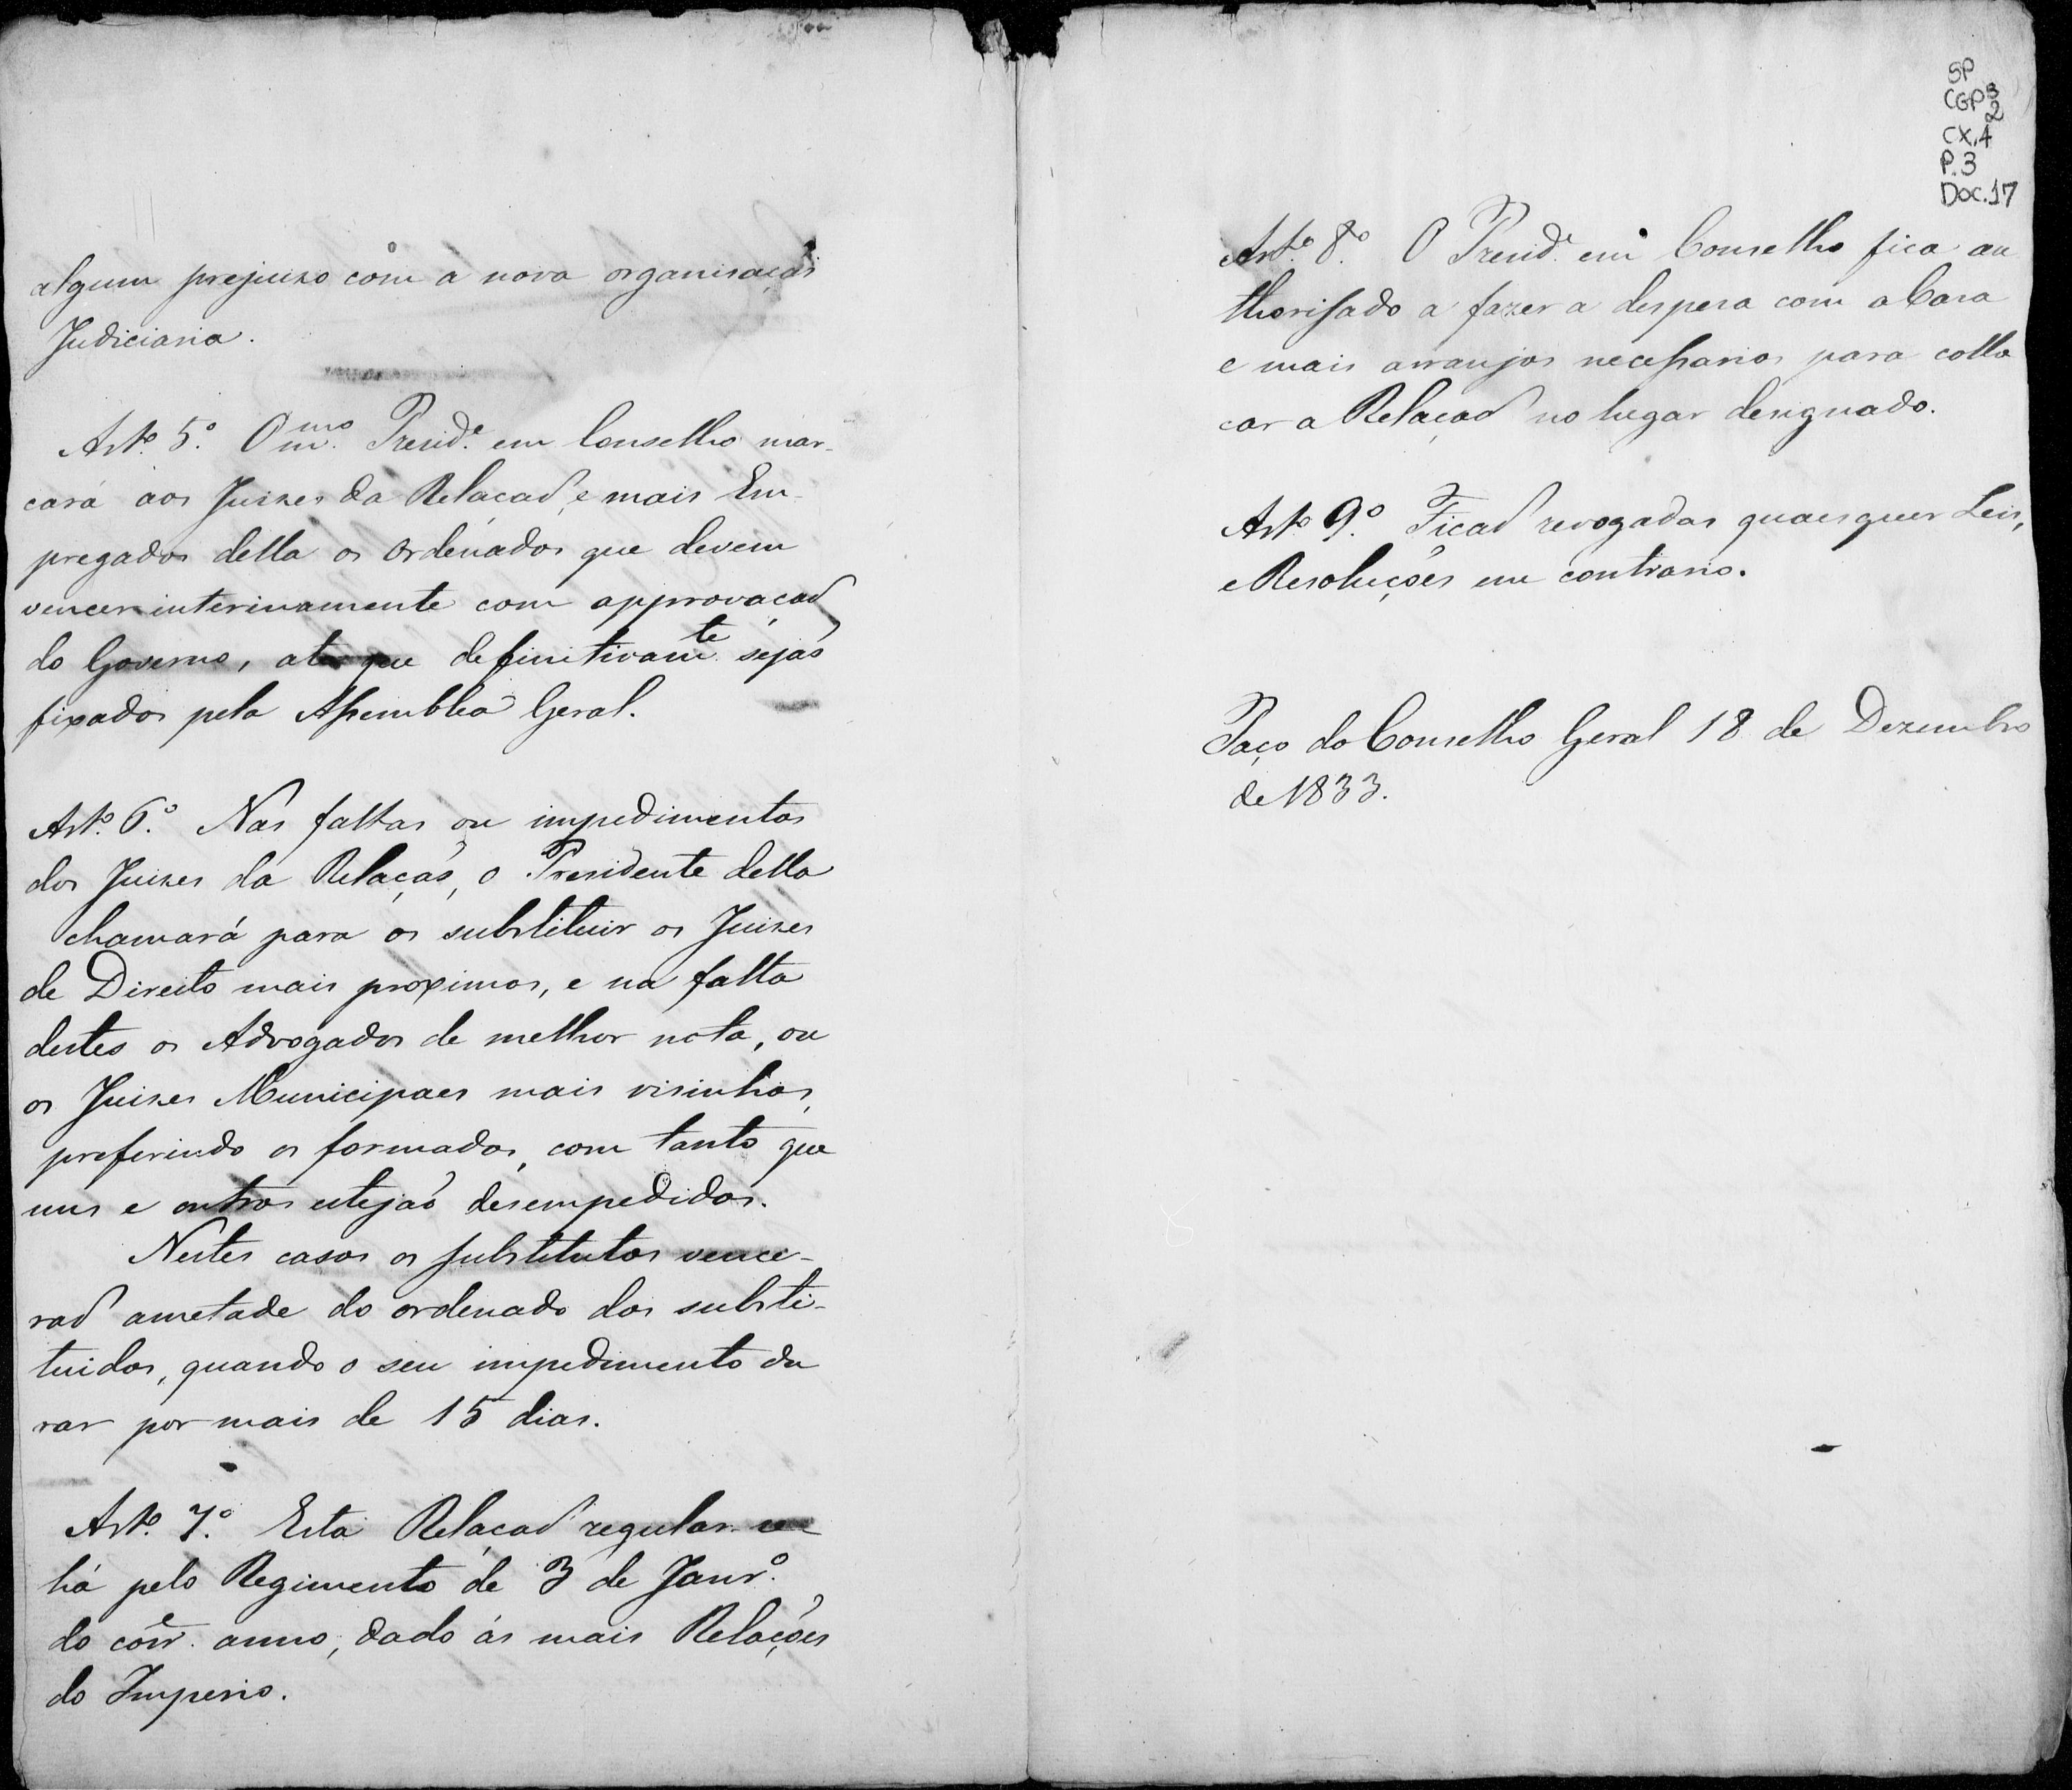 algum prejuizo com a nova organisaçaõ
Judiciaria.
Art.º 5.º O mmo. Presid.e em Conselho mar-
cará aos Juizes da Relaçaõ, e mais Em-
pregados della os Ordenados que devem
vencer interinamente com approvaçaõ
do Governo, ate que definitivamte. sejaõ
fixados pela Assemblea Geral.
Art.º 6.º Nas faltas ou impedimentos
dos Juizes da Relaçaõ, o Presidente della
chamará para os substituir os Juizes
de Direito mais proximos, e na falta
destes os Advogados de melhor nota, ou
os Juizes Municipaes mais visinhos,
preferindo os formados, com tanto que
uns e outros estejaõ desempedidos.
Nestes casos os substitutos vence-
raõ ametade do ordenado dos substi-
tuidos, quando o seu impedimento du
rar por mais de 15 dias.
Art.º 7.º Esta Relaçaõ regular-se-
há pelo Regimento de 3 de Janr.º
do corr.e anno, dado ás mais Relações
do Imperio.
SP
CGP3
2
CX.4
P.3
Doc.17
Art.º 8.º O Presid.e em Conselho fica au
thorisado a fazer a despesa com a Casa
e mais arranjos necessarios para collo
car a Relaçaõ no lugar designado.
Art.º 9.º Ficaõ revogadas quaesquer Leis,
e Resoluções em contrario.
Paço do Conselho Geral 18 de Dezembro
de 1833.